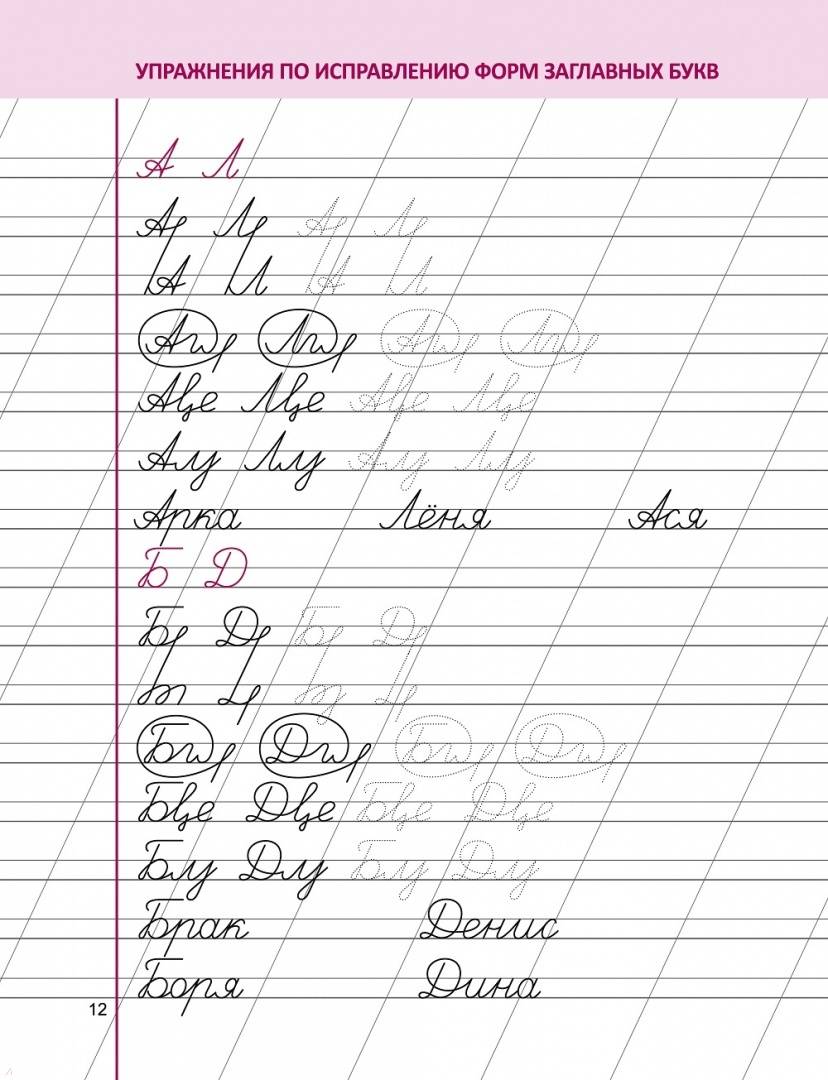 УПРАЖНЕНИЯ ПО ИСПРАВЛЕНИЮ ФОРМ ЗАГЛАВНЫХ БУКВ
А Л
А Л А Л
А Л А Л
Аи Ли Аи Ли
Аце Лце Аце Лце
Алу Ллу Алу Ллу
Арка Лёня Ася
Б Д
Б Д Б Д
Би Ди Би Ди
Бце Дце Бце Дце
Блу Длу Блу Длу
Брак Денис
Боря Дина
12